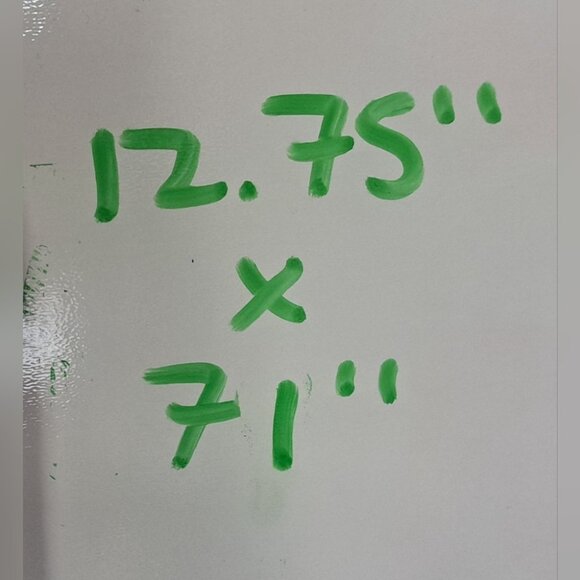 12.75"
x
71"